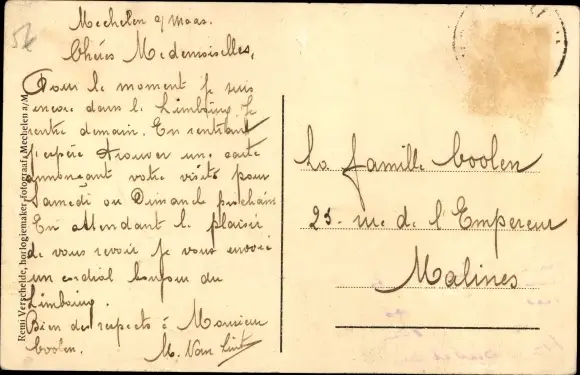 Mechelen a/ Maas.
Chères Medemoiselles,
Pour le moment je suis
encore dans le Limbourg. Je
rentre demain. En rentrant
j'espère trouver une carte
annonçant votre visite pour
Samedi ou Dimanche prochain
En attendant le plaisir
de vous revoir je vous envoie
un cordial bonjour du
Limbourg.
Bien des respects à Monsieur
Coolen.
M. Van Lint
La famille Coolen
25. rue de l'Empereur
Malines
Remi Verschelde, horlogiemaker-fotograaf, Mechelen a/M